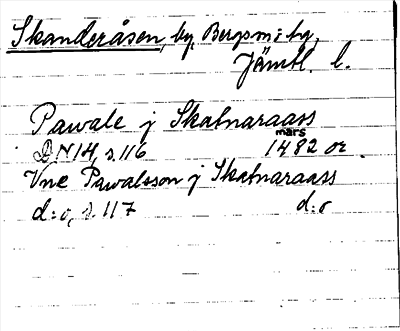 Skanderåsen, by, Bergs m: hg,
Jämtl. l.
Pawale j Skatnaraass
DN 14, s. 116 mars 1482 or.
Vne Pawalsson j Skatnaraass
d:o, s. 117 d:o